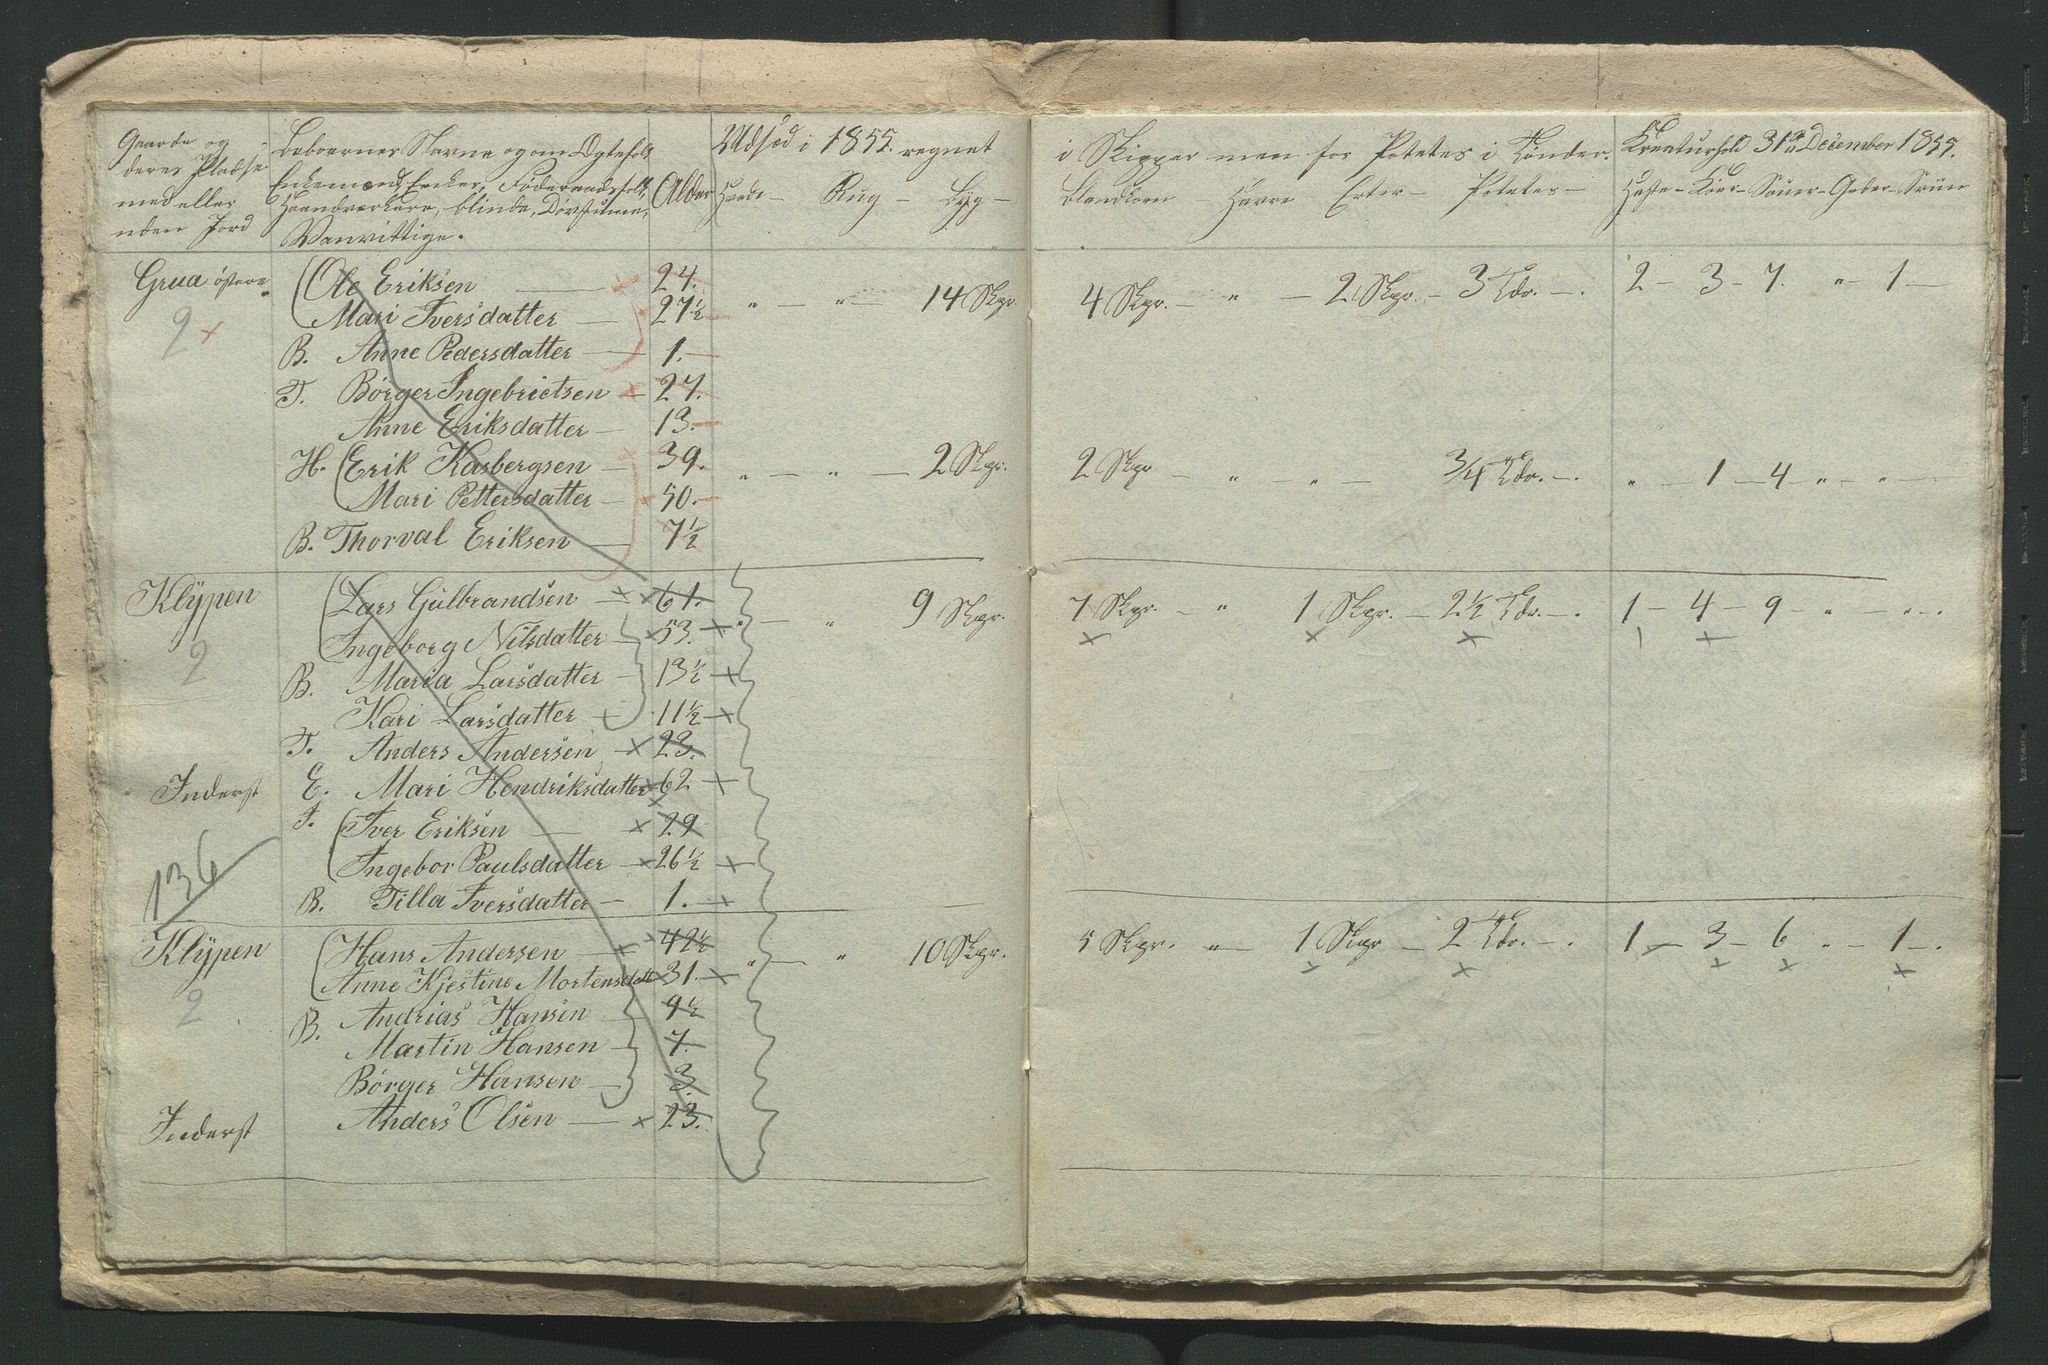 Gaarde og
deres Pladse
med eller
uden Jord
Beboernes Navne og om Ægtefolk
Enkemænd, Enker, Føderaadsfolk,
Haandværkere, blinde, Døvstumme,
Vanvittige.
Alder
Udsæd i 1855. regnet
Hvede - Rug - Byg -
i Skipper men for Potetes i Tønder.
Blandkorn - Havre Erter - Potetes -
Kreaturhold 31te December 1855.
Heste - Kiør - Souer - Geder - Sviin
Grua østere ( Ole Eriksen — 24. " — " — 14 Skpr. 4 Skpr. — " — 2 Skpr. — 3 Tdr. —. 2 — 3 — 7. " — 1 —
2 Mari Iversdatter — 27½
B. Anne Pedersdatter — 1. —
T. Børger Ingebrietsen — 27.
Anne Eriksdatter — 13.
H. ( Erik Kasbergsen — 39. " — " — 2 Skpr. 2 Skpr — " " — 3/4 Tdr. —. " — 1 — 4 " — " —
Mari Pettersdatter — 50. —
B. Thorval Eriksen — 7½
Klÿpen ( Lars Gulbrandsen — 61. " — " 9 Skpr. 7 Skpr. — " 1 Skpr. — 2½ Tdr. —. 1 — 4 — 9 — " — " —.
Ingeborg Nilsdatter — 53.
2 B. Maria Larsdatter — 13½
Kari Larsdatter 11½
T. Anders Andersen 23.
Inderst E. Mari Hendriksdatter 62
T. ( Iver Eriksen — 29
Ingebor Paulsdatter — 26½
136
B. Tilla Iversdatter — 1.
Klÿpen ( Hans Andersen — 42½ " — " 10 Skpr. 5 Skpr. " — 1 Skpr — 2 Tdr. —. 1 — 3 — 6 " — 1 —.
Anne Kjestine Mortensdatt 31.
2 B. Andrias Hansen — 9½
Martin Hansen — 7.
Børger Hansen — 3
Inderst Anders Olsen — 23.